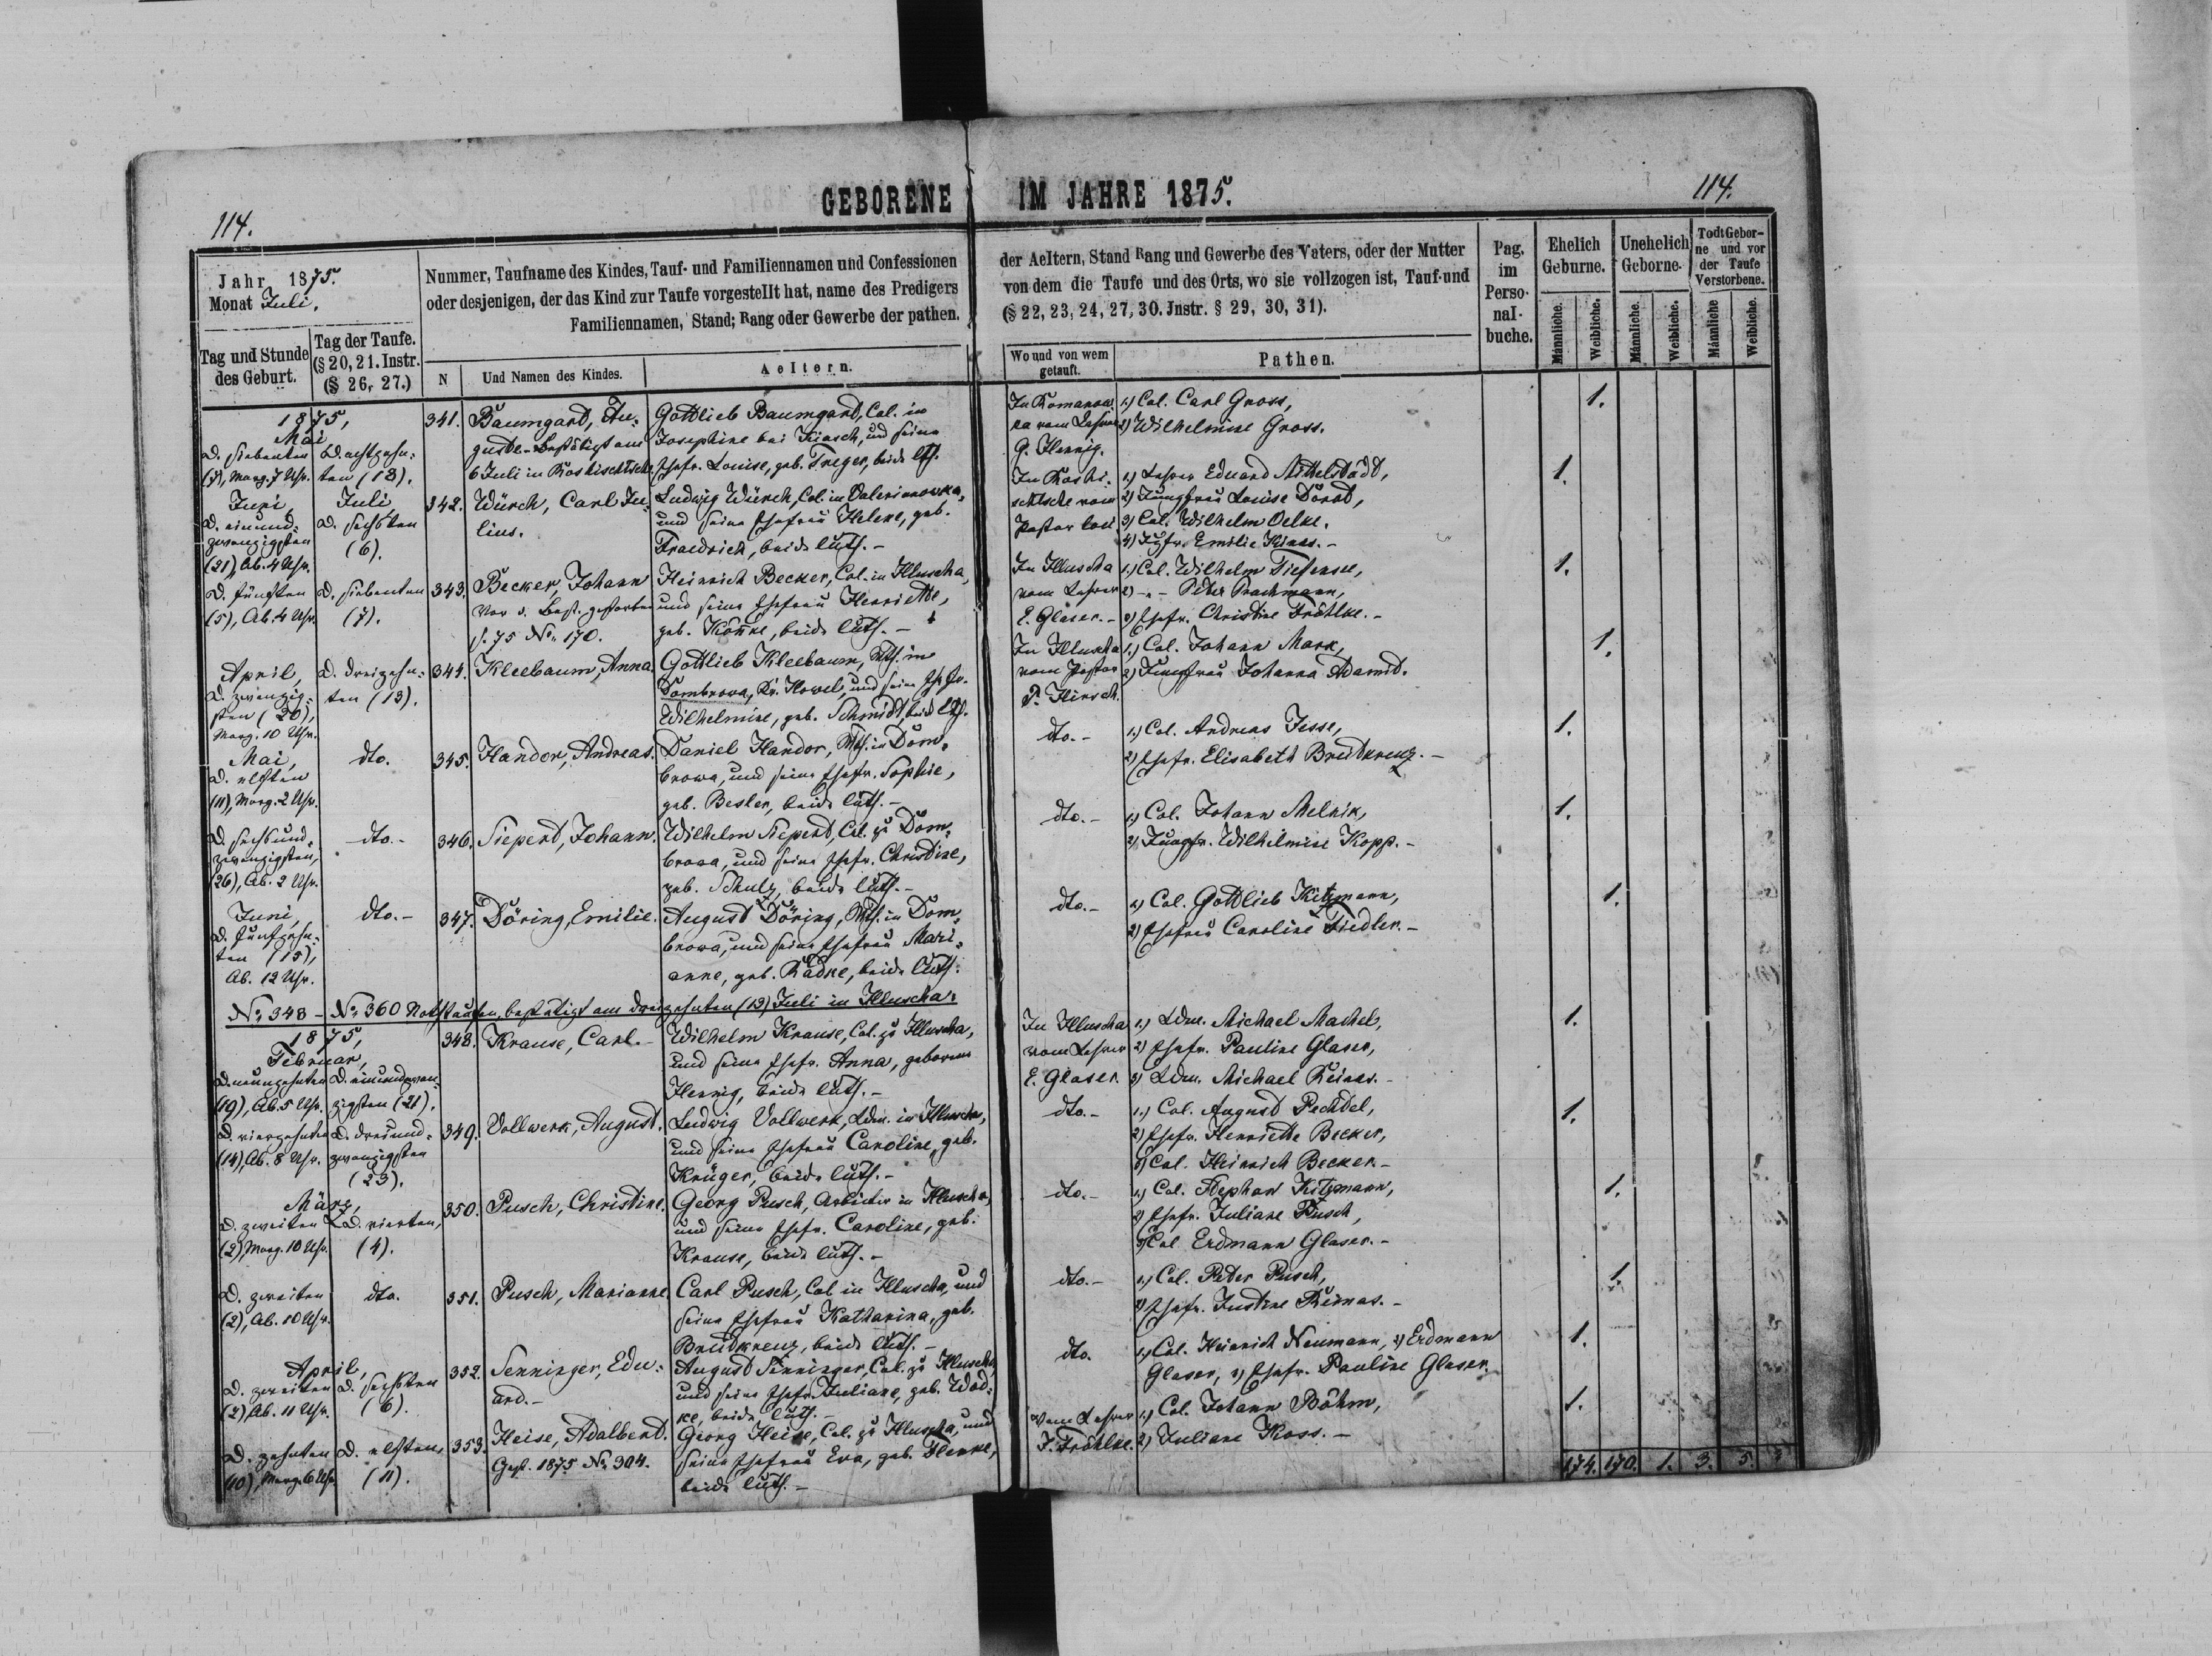 GEBORENE IM JAHRE 1875.
114.
114.
Jahr 1875.
Monat Juli.
Tag und Stunde des Geburt.
Tag der Taufe.
(§ 20, 21. Instr.
(§ 26, 27.)
Nummer, Taufname des Kindes, Tauf- und Familiennamen und Confessionen
oder desjenigen, der das Kind zur Taufe vorgestellt hat, name des Predigers
Familiennamen, Stand; Rang oder Gewerbe der pathen.
N
Und Namen des Kindes.
Aeltern.
der Aeltern, Stand Rang und Gewerbe des Vaters, oder der Mutter
von dem die Taufe und des Orts, wo sie vollzogen ist, Tauf-und
(§ 22, 23, 24, 27, 30. Jnstr. § 29, 30, 31).
Wo und von wem
getauft.
Pathen.
Pag.
im
Perso-
nal-
buche.
Ehelich
Geburne.
Unehelich
Geborne.
Todt Gebor-
ne und vor
der Taufe
Verstorbene.
Männliche.
Weibliche.
Männliche.
Weibliche.
Männliche
Weibliche.
1875,
Mai
D. siebenten
(7), Morg. 7 Uhr.
D. achtzehn-
ten (18).
341.
Baumgard, Au-
guste. Bestätigt am
6 Juli in Roskischtsche
Gottlieb Baumgard, Col. in
Josephine bei Kiasch, und seine
Ehefr. Louise, geb. Treger, beide lth.
In Romanow-
ka vom Lehrer
G. Hennig.
1.) Col. Carl Gross,
2) Wilhelmine Gross.
1.
Juni,
D. einund-
zwanzigsten
(21), Ab. 4 Uhr.
Juli
D. sechsten
(6).
342.
Würch, Carl Ju-
lius.
Ludwig Würch, Col. in Valerianowka,
und seine Ehefrau Helene, geb.
Fraedrich, beide luth. -
In Roski-
schtsche vom
Pastor loci
1.) Lehrer Eduard Mittelstädt,
2) Jungfrau Louise Dörod,
3) Col. Wilhelm Oelke.
4) Jgfr. Emilie Kinas. -
1.
D. fünften
(5), Ab. 4 Uhr.
D. siebenten
(7).
343.
Becker, Johann
Vor d. Best. gestorben
S. 75 No. 170.
Heinrich Becker, Col. in Illuscha,
und seine Ehefrau Henriette,
geb. Köhnke, beide luth. -
In Illuscha
vom Lehrer
E. Glaser. -
1.) Col. Wilhelm Tiefensee,
2) - " - Peter Prachmann,
3) Ehefr. Christine Fröhlke. -
1.
April,
D. zwanzig-
sten (20),
Morg. 10 Uhr.
D. dreizehn-
ten (13).
344.
Kleebaum, Anna.
Gottlieb Kleebaum, Wth. in
Dombrowa, Kr. Kowel, und seine Ehefr.
Wilhelmine, geb. Schmidt, beide lth.
In Illuscha
vom Pastor
P. Hirsch.
1.) Col. Johann Mark,
2) Jungfrau Johanna Adamd.
1.
Mai,
D. elften
(11), Morg. 2 Uhr.
dto.
345.
Handor, Andreas.
Daniel Handor, Wth. in Dom-
browa, und seine Ehefr. Sophie,
geb. Besler, beide luth. -
dto. -
1.) Col. Andreas Jesse,
2) Ehefr. Elisabeth Breitkreuz. -
1.
D. sechsund-
zwanzigsten,
(26), Ab. 2 Uhr.
dto. -
346.
Siepert, Johann.
Wilhelm Siepert, Col. zu Dom-
browa, und seine Ehefr. Christine,
geb. Schulz, beide luth. -
dto. -
1.) Col. Johann Melnik,
2) Jungfr. Wilhelmine Kopp. -
1.
Juni,
D. fünfzehn-
ten (15),
Ab. 12 Uhr.
dto. -
347.
Döring, Emilie.
August Döring, Wth. in Dom-
browa, und seine Ehefrau Mari-
anne, geb. Rädke, beide luth.
dto. -
1.) Col. Gottlieb Kitzmann,
2) Ehefrau Caroline Fiedler. -
1.
No. 348 - No. 360 Nothtaufen, bestätigt am dreizehnten (13) Juli in Illuscha:
1875,
Februar,
D. neunzehnten
(19), Ab. 5 Uhr.
D. einundzwan-
zigsten (21).
348.
Krause, Carl. -
Wilhelm Krause, Col. zu Illuscha,
und seine Ehefr. Anna, geborene
Hennig, beide luth. -
In Illuscha
vom Lehrer
E. Glaser.
1.) Ldm. Michael Machel,
2) Ehefr. Pauline Glaser,
3) Ldm. Michael Reinas. -
1.
D. vierzehnten
(14), Ab. 8 Uhr.
D. dreiund-
zwanzigsten
(23).
349.
Vollwerk, August.
Ludwig Vollwerk, Ldm. in Illuscha,
und seine Ehefrau Caroline, geb.
Krüger, beide luth. -
dto. -
1.) Col. August Pechdel,
2) Ehefr. Henriette Becker,
3) Col. Heinrich Becker. -
1.
März,
D. zweiten
(2), Morg. 10 Uhr.
D. vierten,
(4).
350.
Pusch, Christine.
Georg Pusch, Arbeiter in Illuscha,
und seine Ehefr. Caroline, geb.
Krause, beide luth. -
dto. -
1.) Col. Stephan Kitzmann,
2) Ehefr. Juliane Pusch,
3) Col. Erdmann Glaser. -
1.
D. zweiten
(2), Ab. 10 Uhr.
dto.
351.
Pusch, Marianne
Carl Pusch, Col in Illuscha, und
seine Ehefrau Katharina, geb.
Breitkreuz, beide luth. -
dto. -
1.) Col. Peter Pusch,
2) Ehefr. Justine Reimas. -
1.
April,
D. zweiten
(2) Ab. 11 Uhr.
D. sechsten
(6).
352.
Senninger, Edu-
ard. -
August Senninger, Col. zu Illuscha,
und seine Ehefr. Juliane, geb. Wod-
ke, beide luth. -
dto.
1.) Col. Heinrich Neumann, 2) Erdmann
Glaser, 3) Ehefr. Pauline Glaser.
1.
D. zehnten
(10), Morg. 6 Uhr
D. elften,
(11).
353.
Heise, Adalbert.
Gest. 1875 No. 304.
Georg Heise, Col. zu Illuscha, und
seine Ehefrau Eva, geb. Henke,
beide luth. -
vom Lehrer
J. Fröhlke.
1.) Col. Johann Böhm,
2) Juliane Koss. -
1.
174. 170. 1. 3. 5.